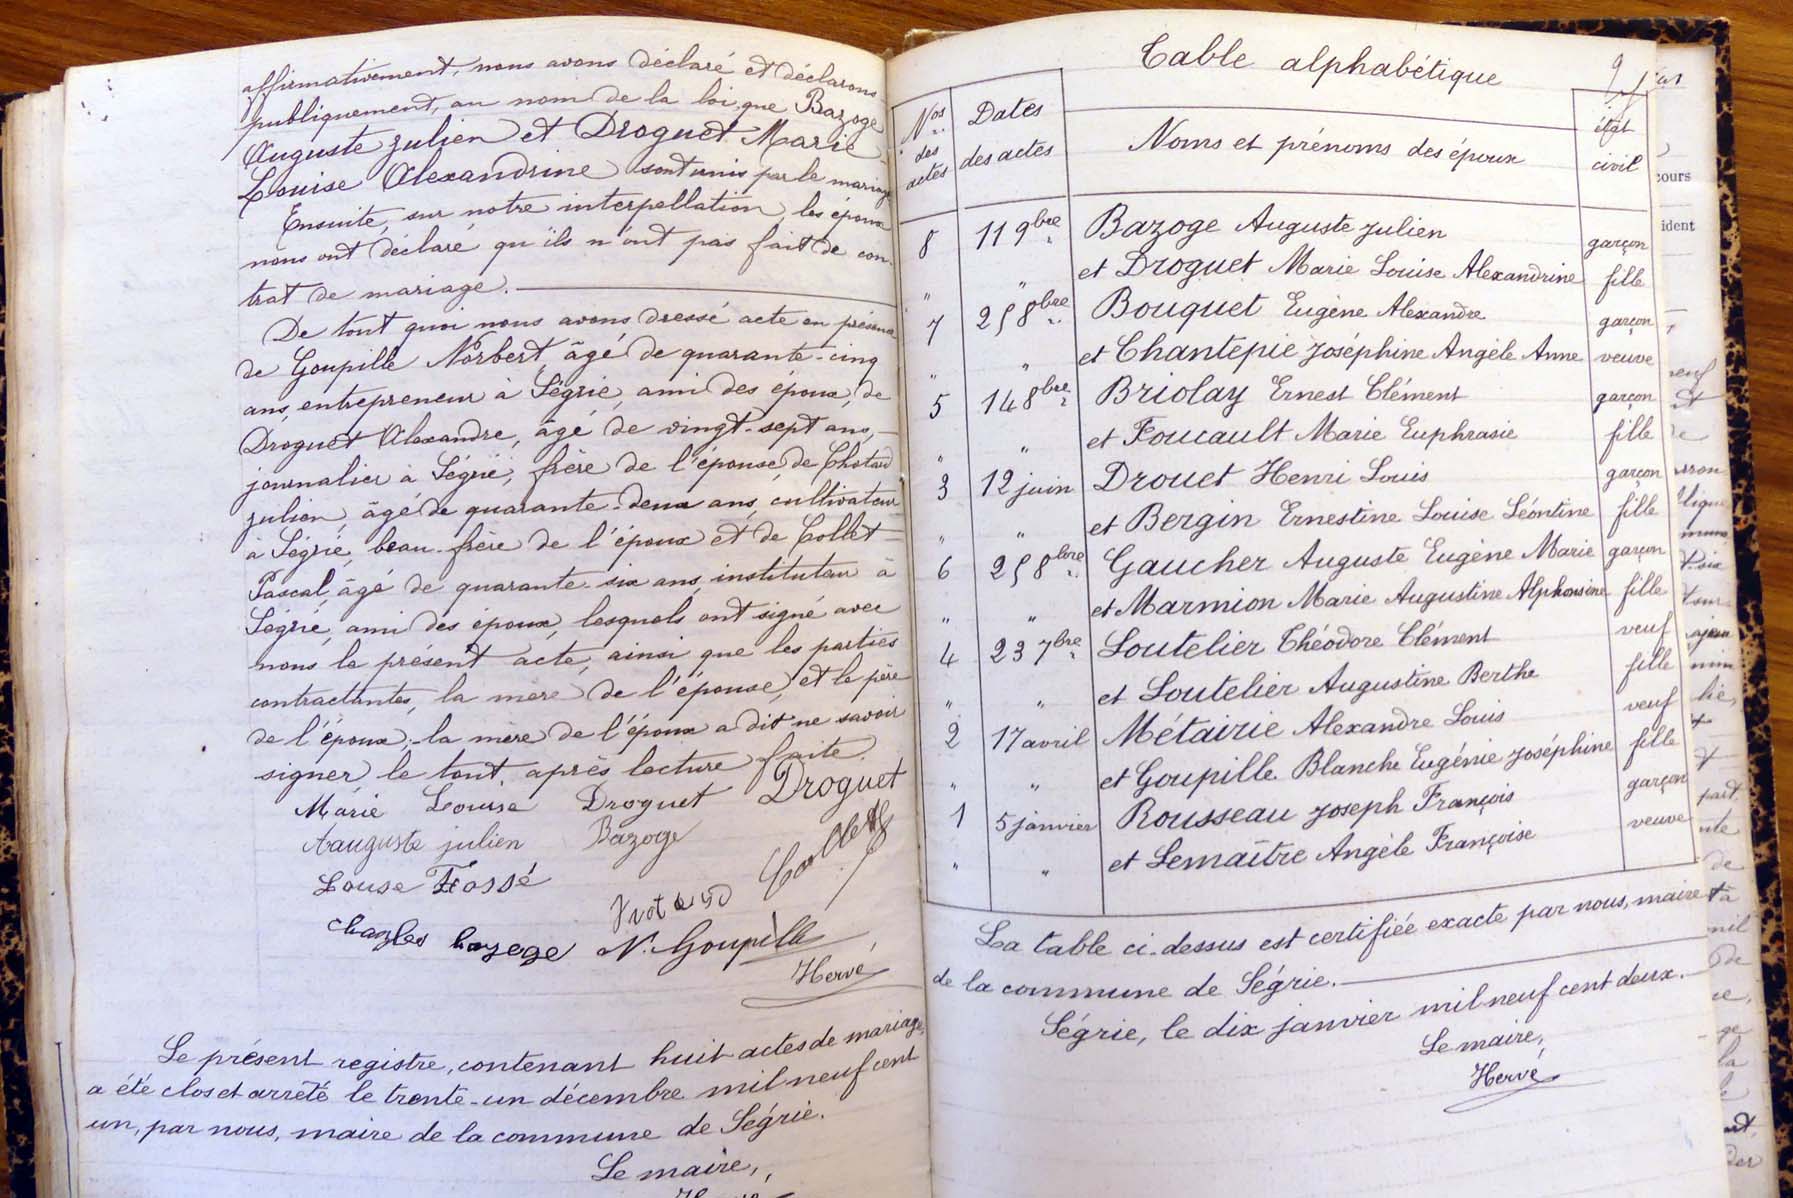 affirmativement, nous avons déclaré et déclarons
publiquement, au nom de la loi, que Bazoge
Auguste Julien et Droguet Marie
Louise Alexandrine sont unis par le mariage
Ensuite, sur notre interpellation, les époux
nous ont déclaré qu'ils n'ont pas fait de con-
trat de mariage.
De tout quoi nous avons dressé acte en présence
de Goupille Norbert, âgé de quarante-cinq
ans, entrepreneur à Ségrie, ami des époux, de
Droguet Alexandre, âgé de vingt-sept ans,
journalier à Ségrie, frère de l'épouse, de Chotard
Julien, âgé de quarante-deux ans, cultivateur
à Ségrie, beau-frère de l'époux et de Collet
Pascal, âgé de quarante-six ans, instituteur à
Ségrie, ami des époux, lesquels ont signé avec
nous le présent acte, ainsi que les parties
contractantes, la mère de l'épouse, et le père
de l'époux; la mère de l'époux a dit ne savoir
signer le tout après lecture faite.
Marie Louise Droguet Droguet
Aauguste julien Bazoge Collet
Louse Fossé
Charles bazoge N. Goupille
Hervé
Le présent registre, contenant huit actes de mariage,
a été clos et arrêté le trente-un décembre mil neuf cent
un, par nous, maire de la commune de Ségrie.
Le maire,
Table alphabétique
Nos des actes Dates des actes Noms et prénoms des époux état civil
8 11 9bre Bazoge Auguste Julien garçon
" " et Droguet Marie Louise Alexandrine fille
7 25 8bre Bouquet Eugène Alexandre garçon
" " et Chantepie Joséphine Angèle Anne veuve
5 14 8bre Briolay Ernest Clément garçon
" " et Foucault Marie Euphrasie fille
3 12 juin Drouet Henri Louis garçon
" " et Bergin Ernestine Louise Léontine fille
6 25 8bre Gaucher Auguste Eugène Marie garçon
" " et Marmion Marie Augustine Alphonsine fille
4 23 7bre Loutelier Théodore Clément veuf
" " et Loutelier Augustine Berthe fille
2 17 avril Métairie Alexandre Louis veuf
" " et Goupille Blanche Eugénie Joséphine fille
1 5 janvier Rousseau Joseph François garçon
" " et Lemaître Angèle Françoise veuve
La table ci-dessus est certifiée exacte par nous, maire
de la commune de Ségrie.
Ségrie, le dix janvier mil neuf cent deux.
Le maire,
Hervé
cours
ident